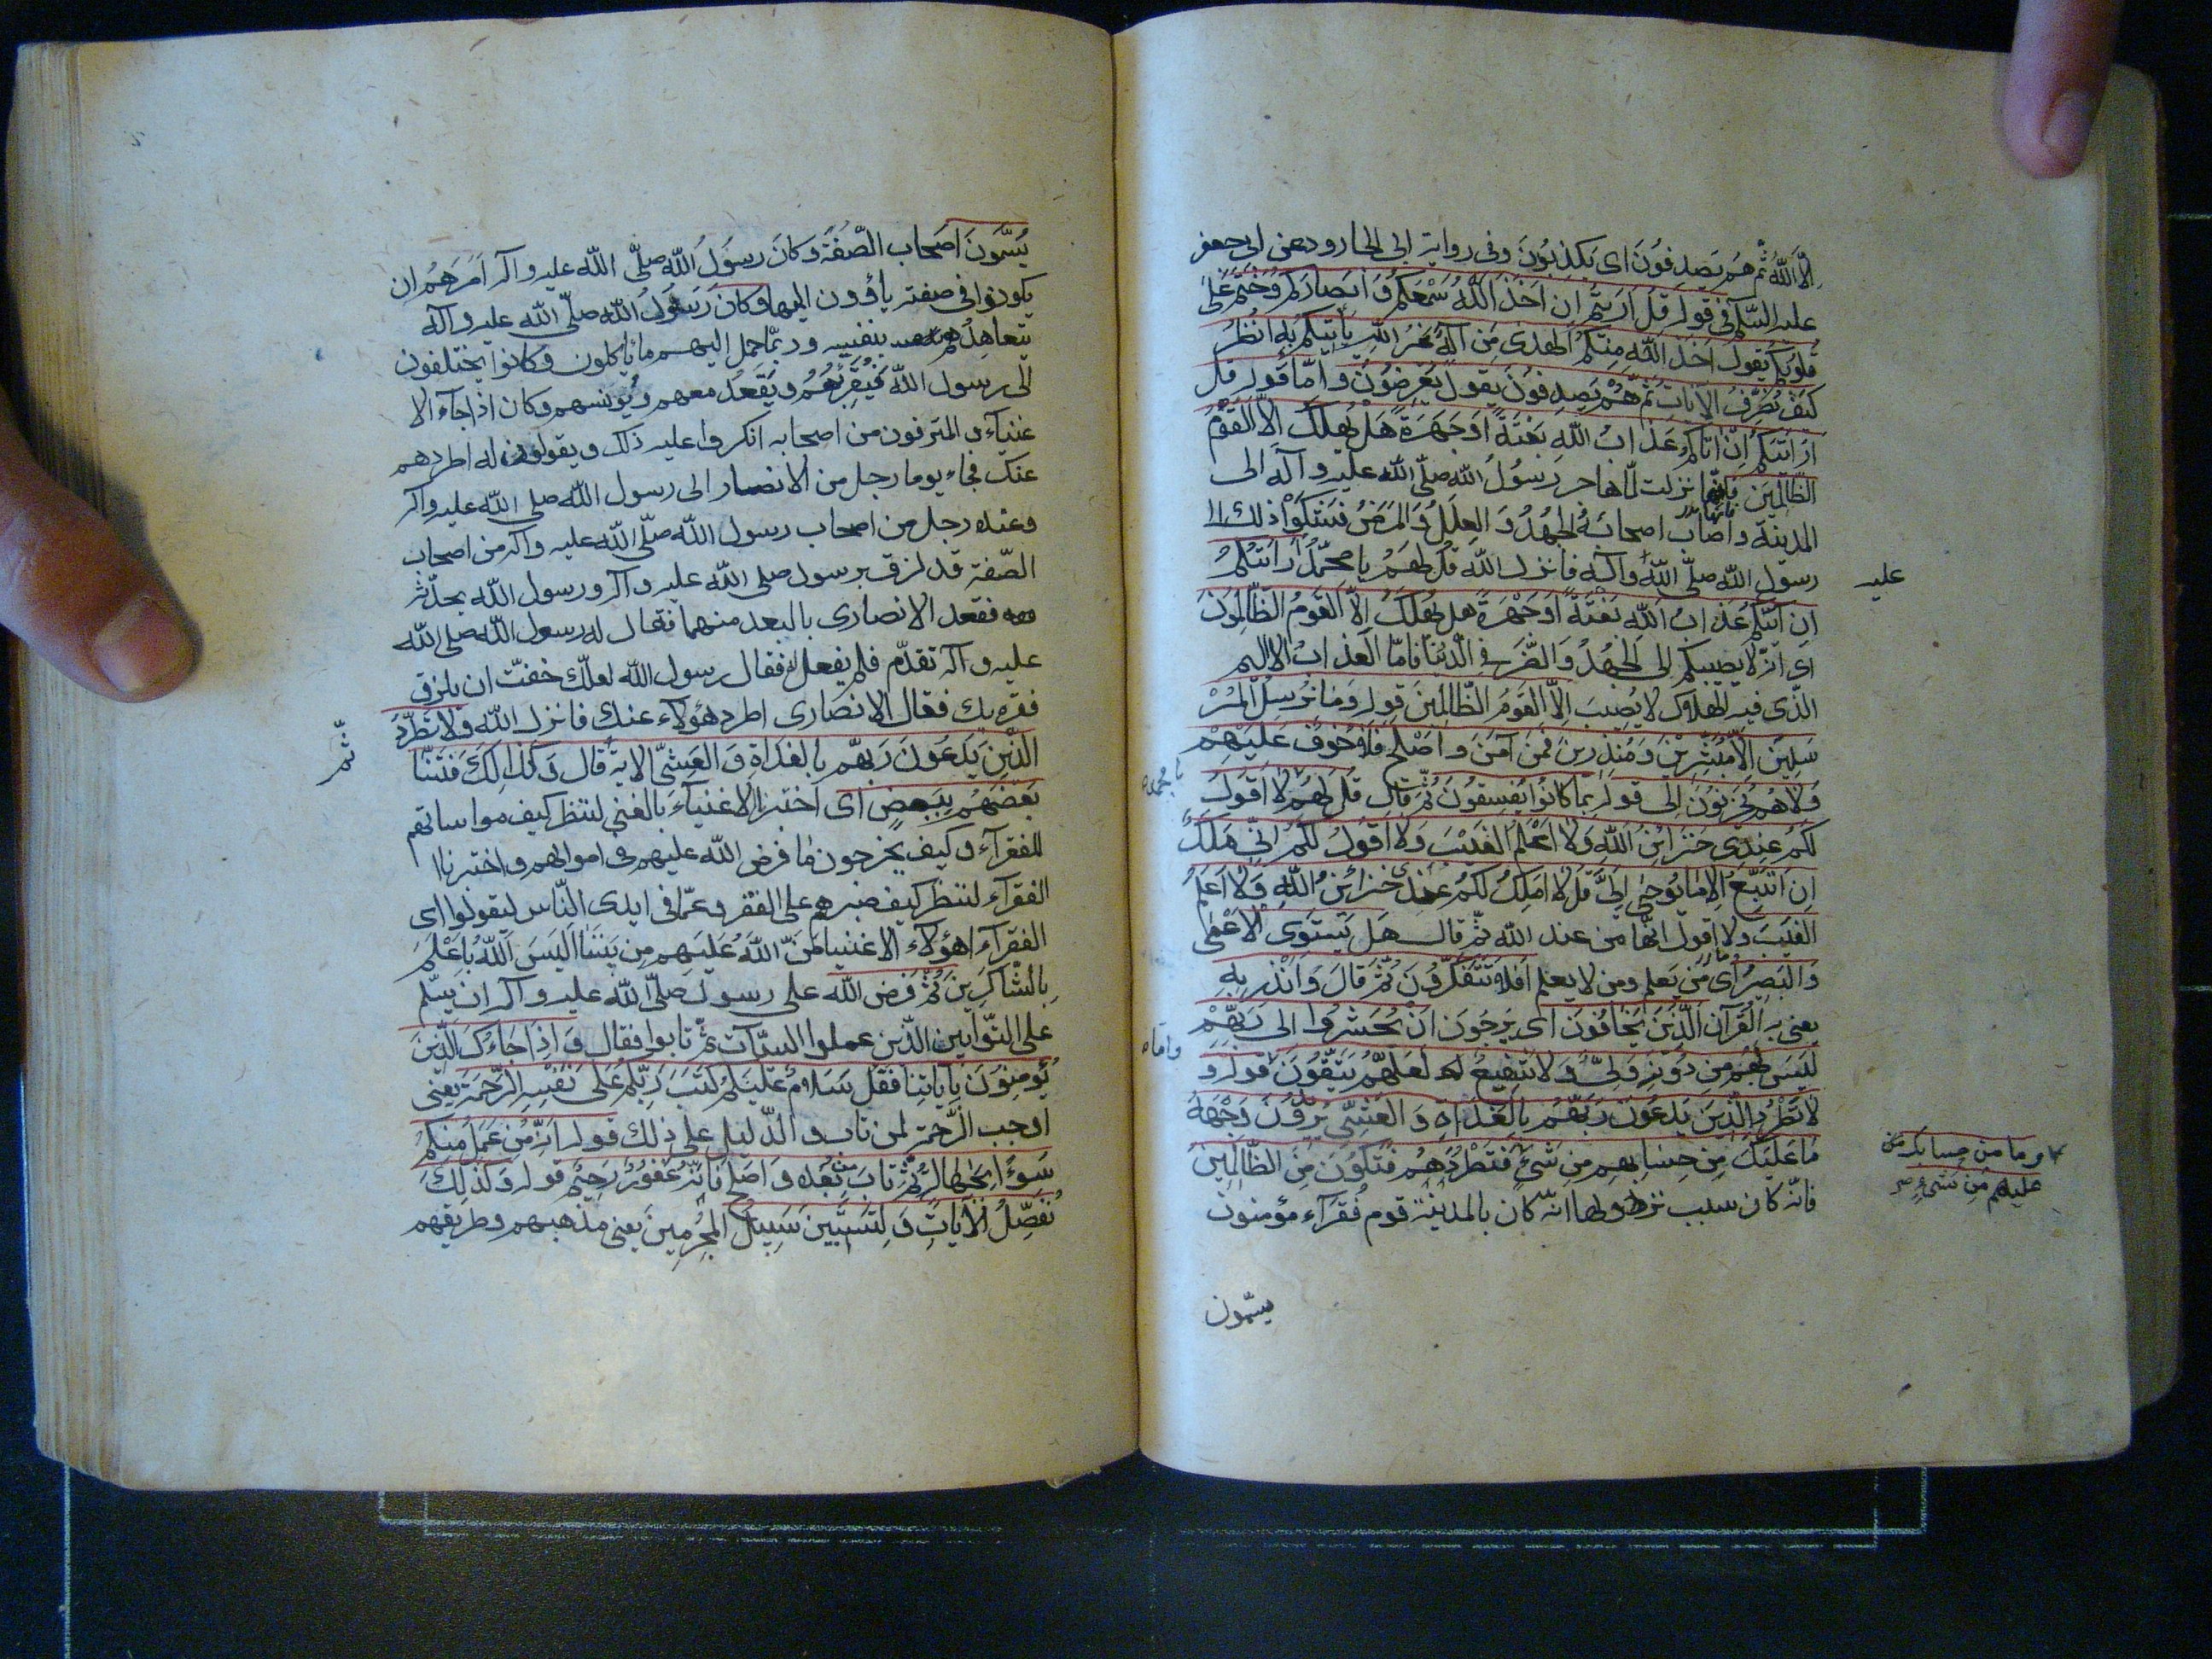 الا الله ثم هم يصدفون اى يكذبون وفى رواية ابى الجارود عن ابى جعفر
عليه السلم فى قوله قل ارايتم ان اخذ الله سمعكم وابصاركم وختم على
قلوبكم يقول اخذ الله منكم الهدى من آله غير الله ياتيكم به انظر
كيف نصرف الايات ثم هم يصدفون يقول يعرضون واما قوله قل
ارايتكم ان اتاكم عذاب الله بغتة او جهرة هل يهلك الا القوم
الظالمين فانها نزلت لما هاجر رسول الله صلى الله عليه وآله الى
المدينة واصاب اصحابه الجهد والعلل والمرض فشكوا ذلك الى
رسول الله صلى الله وآله فانزل الله قل لهم يا محمد ارايتكم
عليه
ان اتيكم عذاب الله بغتة او جهرة هل يهلك الا القوم الظالمون
اى انه لا يصيبكم الى الجهد والضر فى الدنيا فاما العذاب الاليم
الذى فيه الهلاك لا يصيب الا القوم الظالمين قوله وما نرسل المر
سلين الا مبشرين ومنذرين فمن آمن واصلح فلا خوف عليهم
ولاهم يحزنون الى قوله بما كانوا يفسقون ثم قال قل لهم لا اقول
يا محمد
لكم عندى خزائن الله ولا اعلم الغيب ولا اقول لكم انى ملك
ان اتبع الا ما يوحى الى قل لا املك لكم عندى خزائن الله ولا اعلم
الغيب ولا اقول انها من عند الله ثم قال هل يستوى الاعمى
والبصير اى من يعلم ومن لا يعلم افلا تتفكرون ثم قال وانذر به
يعنى به القرآن الذين يخافون اى يرجون ان يحشروا الى ربهم
ليس لهم من دونه ولى ولا شفيع لعلهم يتقون قوله و
واما
لا تطرد الذين يدعون ربهم بالغداة والعشى يريدون وجهه
ما عليك من حسابهم من شئ فتطردهم فتكون من الظالمين
وما من حسابك من
عليهم من شئ
فانه كان سبب نزولها انه كان بالمدينة قوم فقرآء مؤمنون
يسمون
يسمون اصحاب الصفة وكان رسول الله صلى الله عليه وآله امرهم ان
يكونوا فى صفته ياؤون اليها وكان رسول الله صلى الله عليه وآله
يتعاهدهم بنفسه وربما حمل اليهم ما ياكلون وكانوا يختلفون
الى رسول الله فيقربهم ويقعد معهم ويونسهم وكان اذا جآء الا
غنيآء والمترفون من اصحابه انكروا عليه ذلك ويقولون له اطردهم
عنك فجاء يوما رجل من الانصار الى رسول الله صلى الله عليه وآله
وعنده رجل من اصحاب رسول الله صلى الله عليه وآله من اصحاب
الصفة قد لزق برسول صلى الله عليه وآله ورسول الله يحدثه
فقعد الانصارى بالبعد منهما فقال له رسول الله صلى الله
عليه وآله تقدم فلم يفعل فقال رسول الله لعلك خفت ان يلزق
فقره بك فقال الانصارى اطرد هؤلاء عنك فانزل الله ولا تطرد
الذين يدعون ربهم بالغداة والعشى الاية قال وكذلك فتنا
ثم
بعضهم ببعض اى اختبرنا الاغنيآء بالغنى لننظر كيف مواساتهم
للفقرآء وكيف يخرجون ما فرض الله عليهم فى اموالهم واختبرنا ا
لفقرآء لننظر كيف صبرهم على الفقر وعما فى ايدى الناس ليقولوا اى
الفقرآء اهؤلاء الاغنيا من الله عليهم من بيننا اليس الله باعلم
بالشاكرين ثم فرض الله على رسوله صلى الله عليه وآله ان يسلم
على التوابين الذين عملوا السيات ثم تابوا فقال واذا جاءك الذين
يؤمنون باياتنا فقل سلام عليكم كتب ربكم على نفسه الرحمة يعنى
اوجب الرحمة لمن تاب والدليل على ذلك قوله انه من عمل منكم
سوءا بجهالة ثم تاب من بعده واصلح فانه غفور رحيم قوله وكذلك
نفصل الايات ولتستبين سبيل المجرمين يعنى مذهبهم وطريقهم